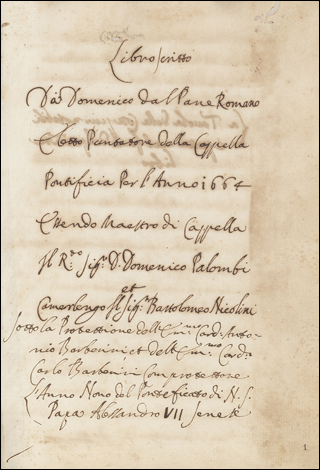 Libro scritto
Da Domenico dal Pane Romano
Eletto Puntatore della Cappella
Pontificia Per l'Anno 1664
Essendo Maestro di Cappella
Il R.do Sig.r D. Domenico Palombi
et
Camerlengo Il Sig.r Bartolomeo Nicolini
sotto la Protettione dell'Em.mo Card. Anto-
nio Barberini et dell'Em.mo Card.
Carlo Barberini Comprotettore
L'Anno Nono del Pontificato di N. S.
Papa Alessandro VII
1